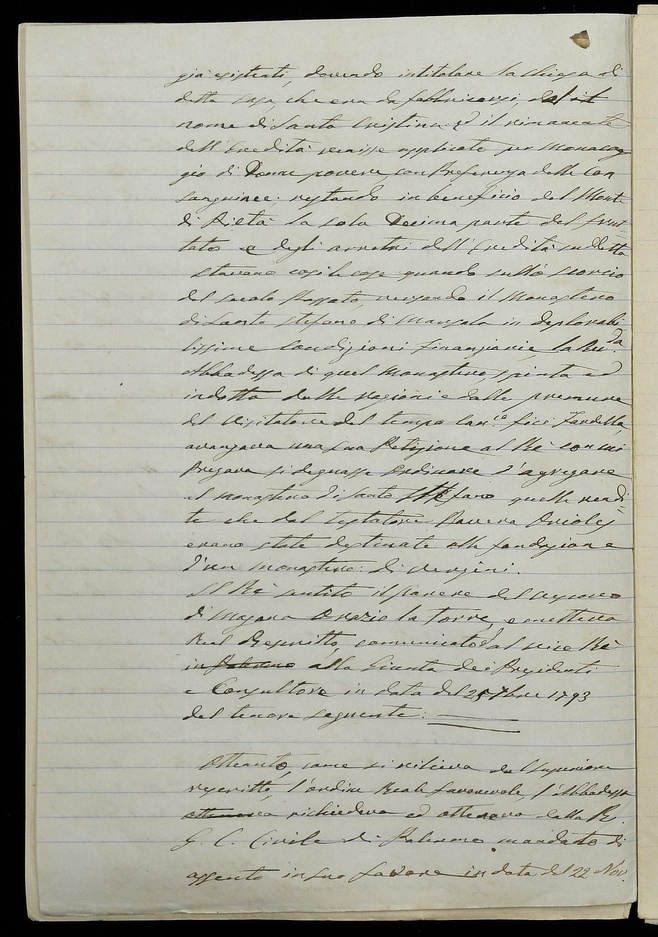 già esistenti, dovendo intitolare la chiesa di
detta casa, che era da fabbricarsi, dal il
nome di Santa Cristina; ed il rimanente
dell'Eredità venisse applicato per monacag
gio di Donne povere con Preferenza delle Con
sanguinee; restando in beneficio del Monte
di Pietà la sola Decima parte del frut=
tato e degli arretri dell'Eredità suddetta
stavano così le cose quando sullo scorcio
del secolo passato, versando il Monastero
di Santo Stefano di Mazzola in deplorabi
lissime condizioni finanziarie, la Rev.da
Abbadessa di quel monastero, spinta ed
indotta dalle ragioni e dalle premure
del Visitatore del tempo Fardella,
avanzava una sua Petizione al Rè con cui
Pregava si degnasse Ordinare l'agregare
al monastero di Santo Stefano quelle rendi=
te che dal testatore Ravera
erano state destinate alla fondazione
d'un monastero di vergini.
Il Rè sentito il parere del Vescovo
di Mazara Orazio la Torre, emetteva
Real Dispaccio, comunicato dal vice Rè
in Palermo alla Giunta dei Presidenti
e Consultore in data del 25 7bre 1793
del tenore seguente:
Ottenuto, come si rileva dal Superiore
rescritto, l'ordine Reale favorevole, l'Abbadessa
ottenne richiedeva ed otteneva dalla R.
G. C. Civile di Palermo mandato di
assento in suo favore in data del 22 Nov.